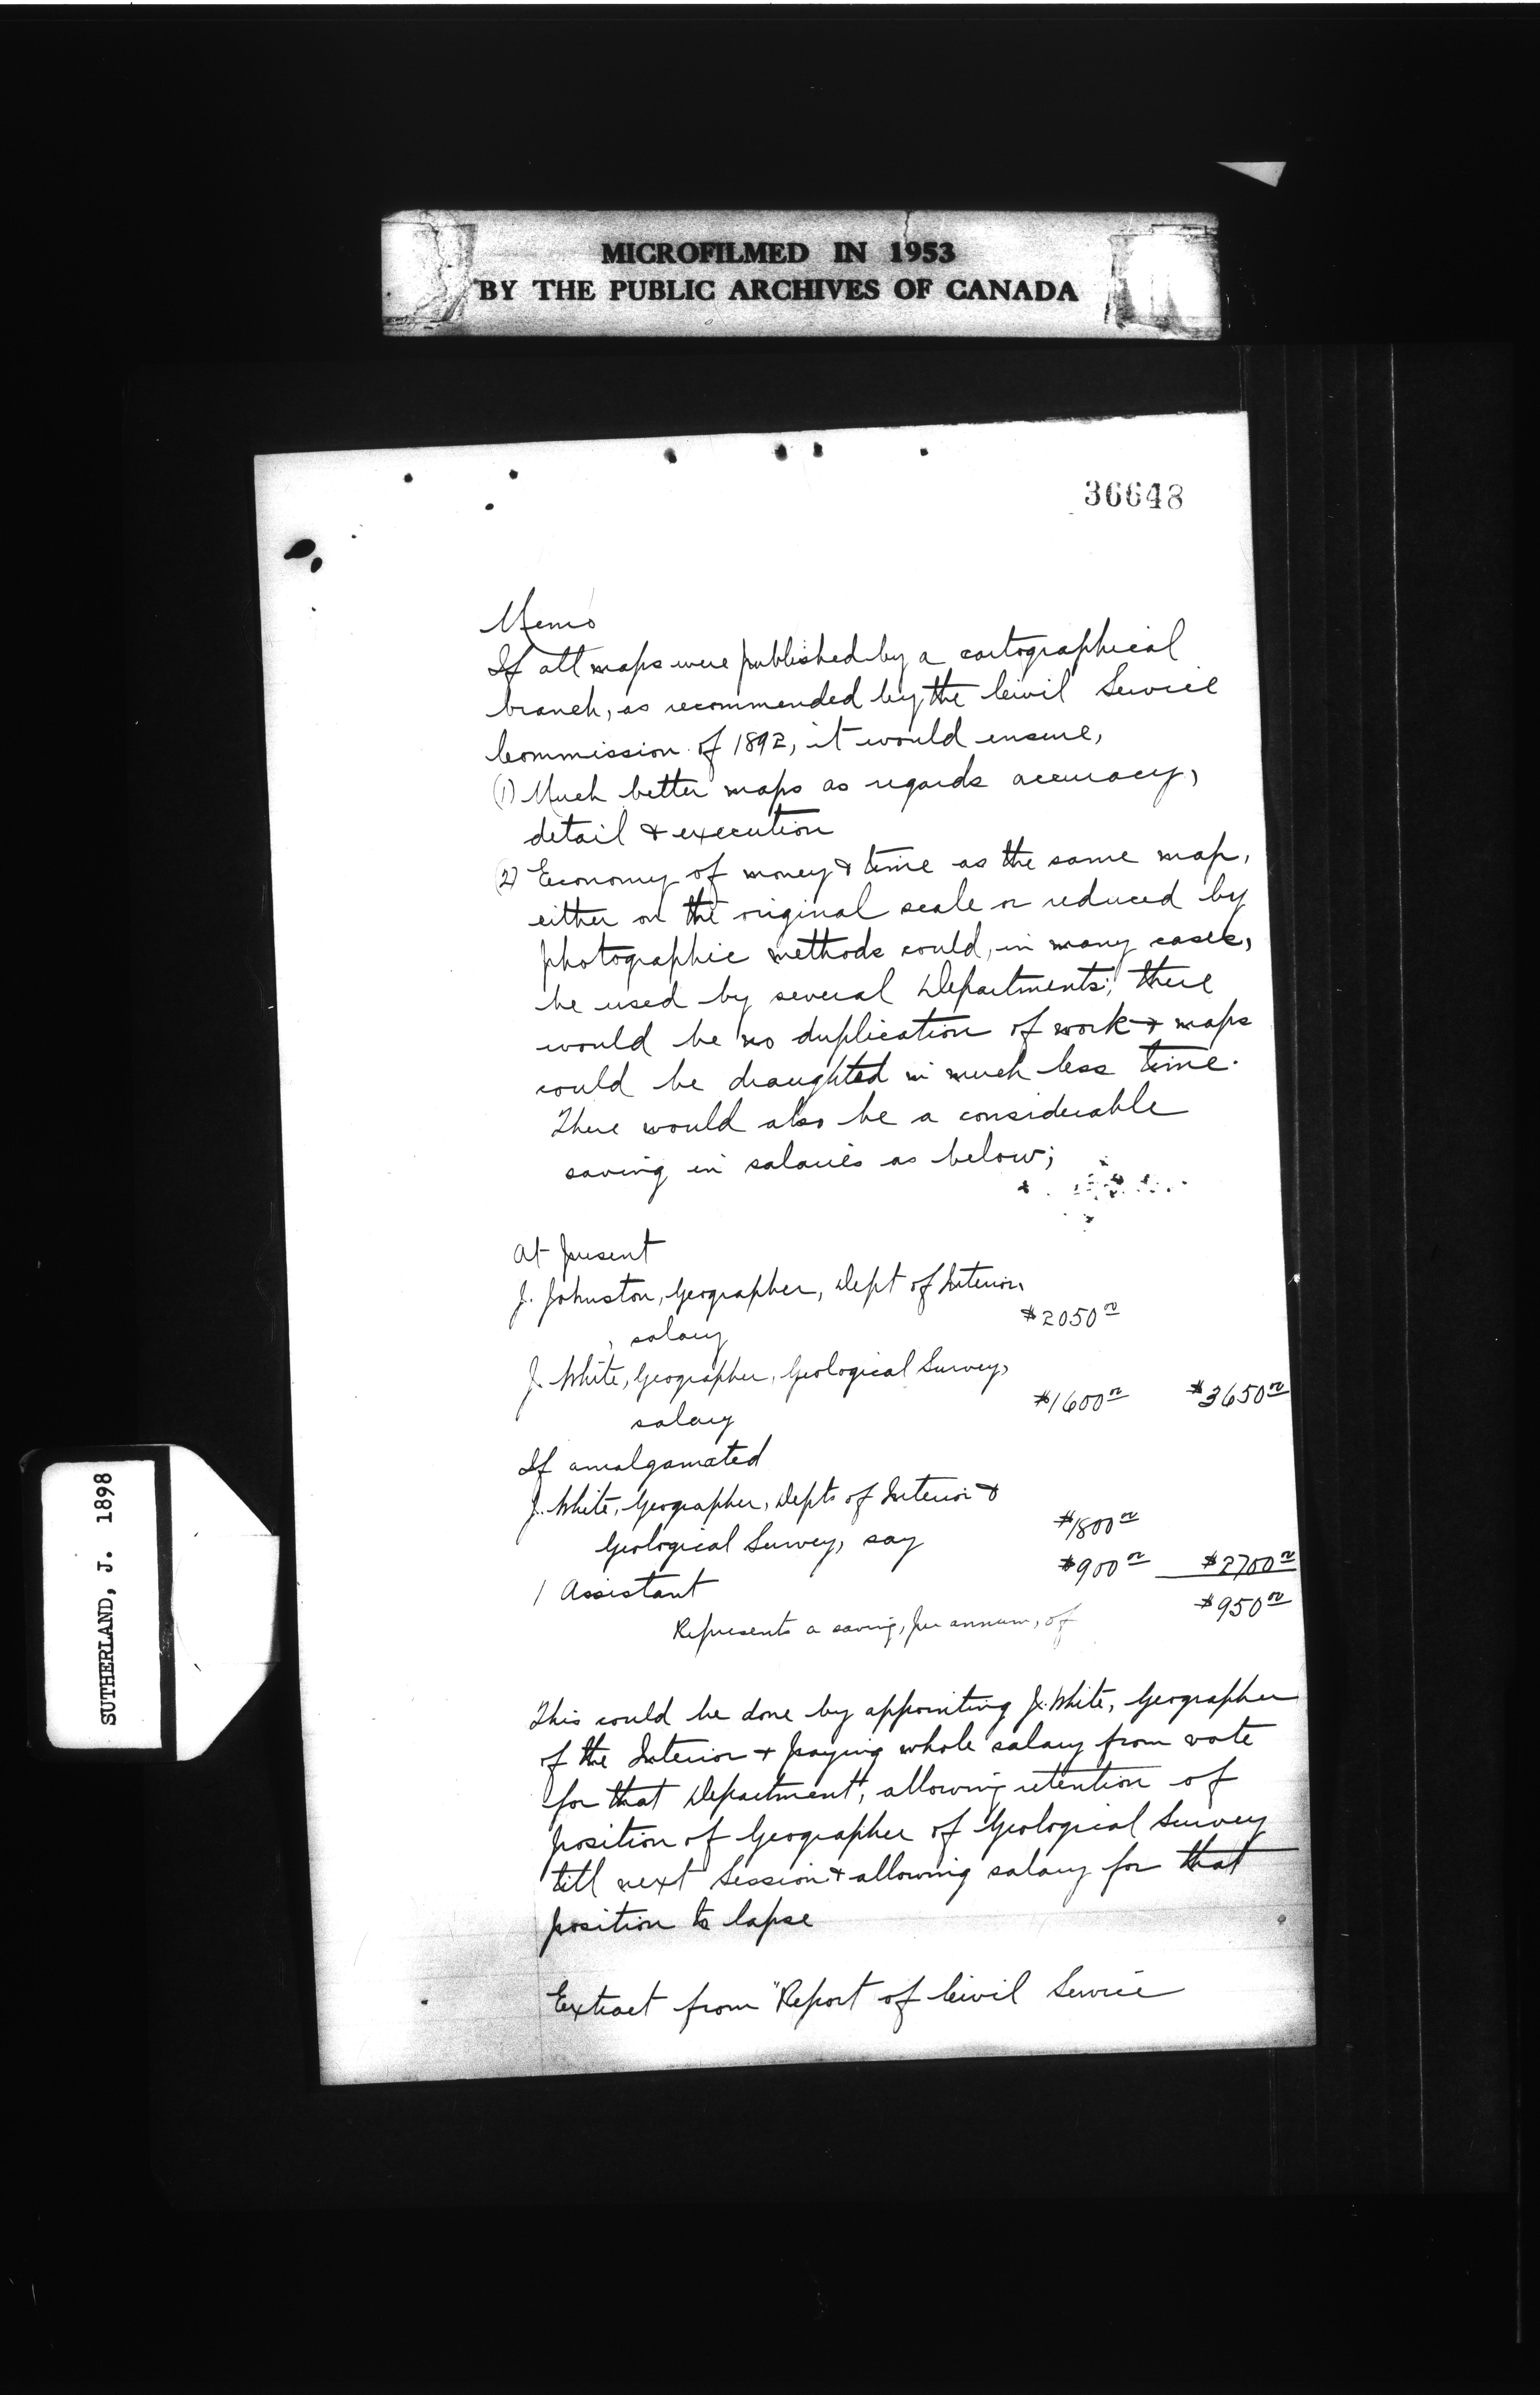 MICROFILMED IN 1953
BY THE PUBLIC ARCHIVES OF CANADA
36648
Memo
If all maps were published by a cartographical
branch, as recommended by the Civil Service
Commission of 1892, it would ensure,
(1) Much better maps as regards accuracy,
detail & execution
(2) Economy of money & time as the same map,
either on the original scale or reduced by
photographic methods could, in many cases,
be used by several Departments; there
would be no duplication of work & maps
could be draughted in much less time.
There would also be a considerable
saving in salaries as below;
At present
J. Johnston, Geographer, Dept of Interior,
salary $2050 00
J. White, Geographer, Geological Survey,
salary $1600 00 $3650 00
If amalgamated
J. White, Geographer, Depts of Interior &
Geological Survey, say $1800 00
1 Assistant $900 00 $2700 00
Represents a saving, per annum, of $950 00
This could be done by appointing J. White, Geographer
of the Interior & paying whole salary from vote
for that Department, allowing retention of
position of Geographer of Geological Survey
till next Session & allowing salary for that
position to lapse
Extract from "Report of Civil Service
SUTHERLAND, J. 1898